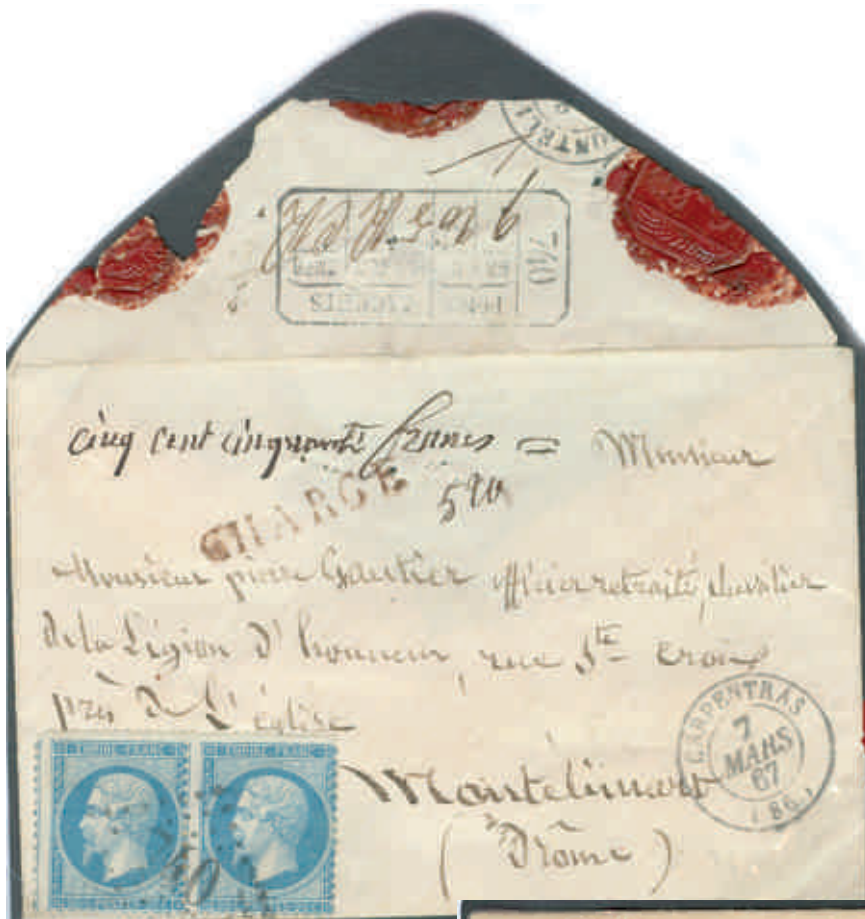 MONTELI
740
cinq cent cinquante francs = Monsieur
CHARGÉ
Monsieur pierre Gautier officier retraité, chevalier
de la Légion d'honneur, rue Ste Croix
près de L'église
Montélimart
( Drôme )
CARPENTRAS
7
MARS
67
(86)
EMPIRE FRANC
EMPIRE FRANC